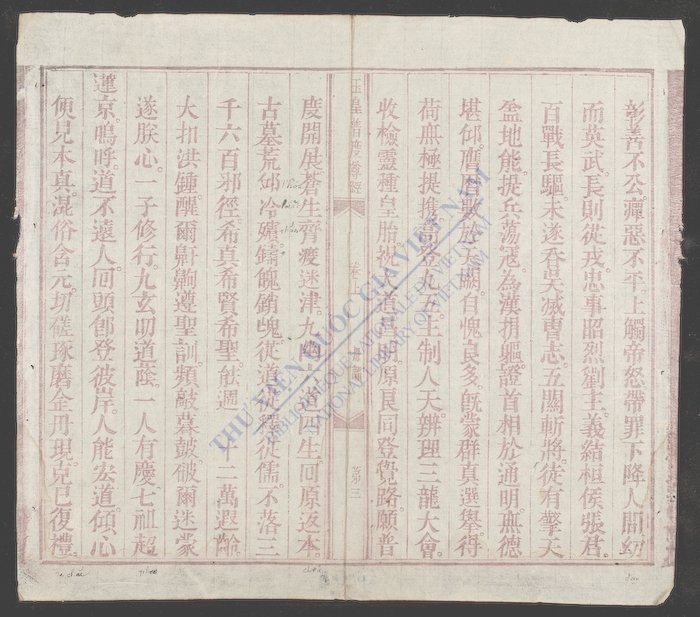 彰善不公。癉惡不平。上觸帝怒。帶罪下降人間。幼
而英武。長則從戎。忠事昭烈劉主。義結桓侯張君。
百戰長驅。未遂吞吳滅曹志。五關斬將。徒有擎天
盖地能。提兵蕩寇。為漢捐驅。證首相於通明。無德
堪仰。膺居歇於天闕。自愧良多。旣蒙群真選舉。得
荷無極提携。高登九五。主制人天。辨理三龍大會。
收檢靈種皇胎。從大道昌明。原良同登覺路。願普
玉皇普度尊經
卷
第三
度開展。蒼生齊渡迷津。九幽 道四生回原返本。
古墓荒邱。冷殯鑄魄銷魂。從道從釋從儒。不落三
千六百邪徑。希真希賢希聖。能週 十二萬遐齡。
大扣洪鍾。醒爾鼾齁。遵聖訓。頻敲暮鼓。破爾迷蒙。
遂朕心。一子修行。九玄叨道蔭。一人有慶。七祖超
瓊京。嗚呼。道不遠人。回頭卽登彼岸。人能宏道。傾心
便見本真。混俗含元。切磋琢磨金丹現。克己復禮。
THƯ VIỆN QUỐC GIA VIỆT NAM
BIBLIOTHÈQUE NATIONALE DU VIETNAM
NATIONAL LIBRARY OF VIETNAM